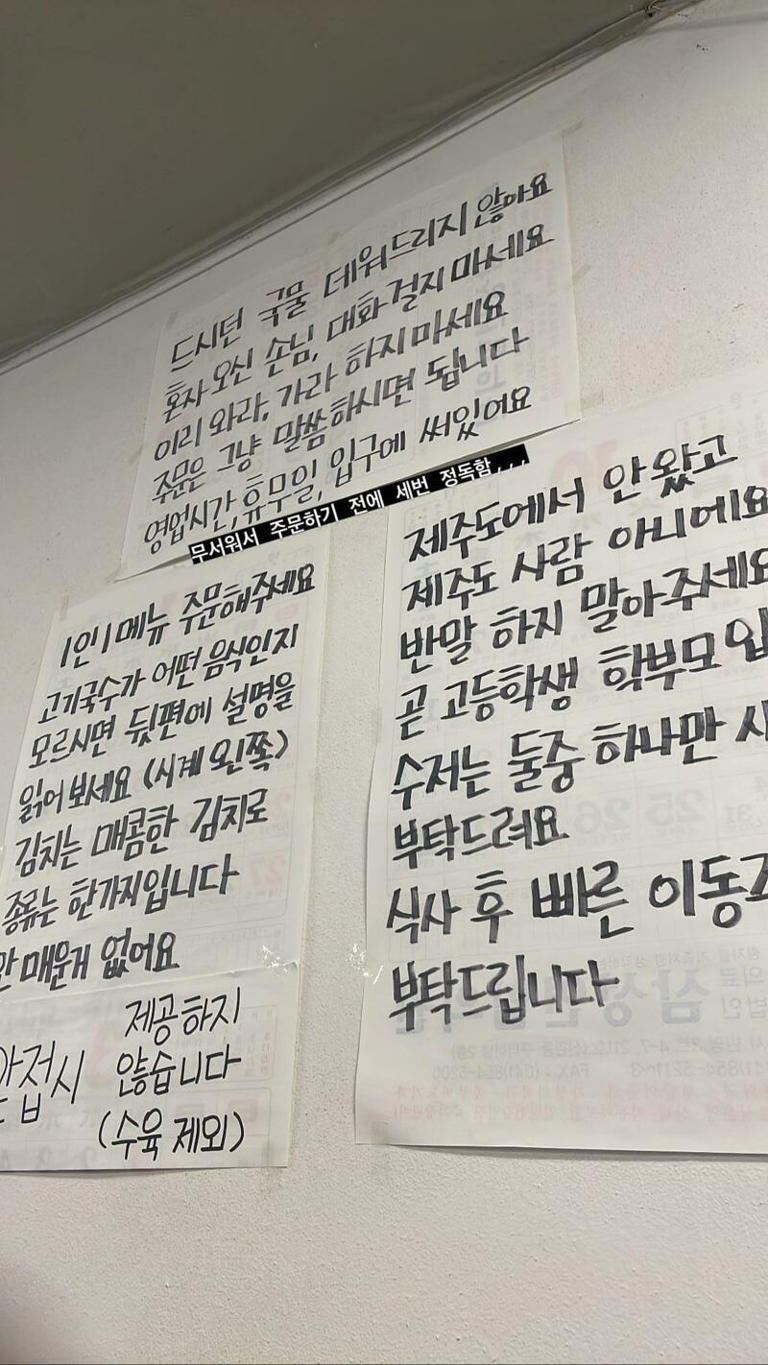 드시던 국물 데워드리지 않아요
혼자 오신 손님, 대화 걸지 마세요
이리 와라, 가라 하지 마세요
주문은 그냥 말씀하시면 됩니다
영업시간, 휴무일, 입구에 써있어요
무서워서 주문하기 전에 세번 정독함...
1인 1메뉴 주문해주세요
고기국수가 어떤 음식인지
모르시면 뒷편에 설명을
읽어 보세요 (시계 왼쪽)
김치는 매콤한 김치로
종류는 한가지입니다
안 매운게 없어요
앞접시 제공하지
않습니다
(수육 제외)
제주도에서 안 왔고
제주도 사람 아니에요
반말 하지 말아주세요
곧 고등학생 학부모입
수저는 둘중 하나만 사
부탁드려요
식사 후 빠른 이동
부탁드립니다